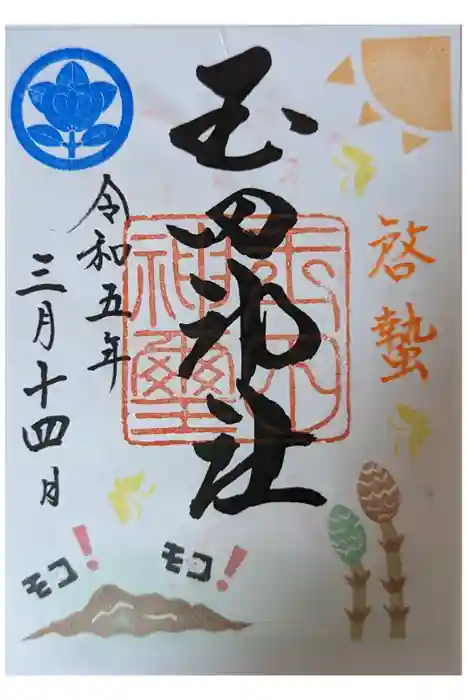 啓蟄
玉田神社
神璽
令和五年
三月十四日
モコ!
モコ!